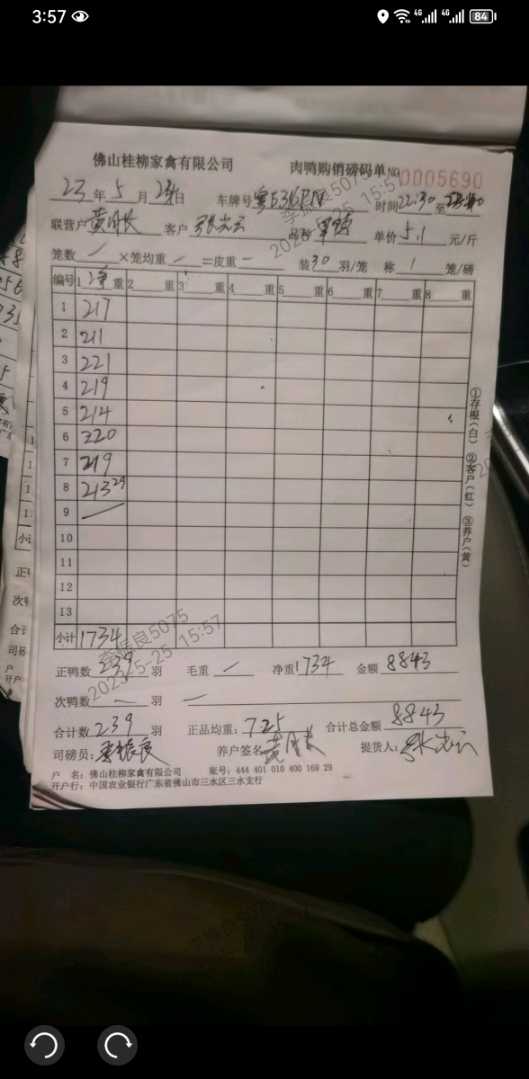 3:57
4G 4G 84
佛山桂柳家禽有限公司 肉鸭购销磅码单 № 0005690
23 年 5 月 24 日 车牌号 时间 22:30 至
联营户 客户 张光云 品种 单价 5.1 元/斤
笼数 — ×笼均重 — =皮重 — 装 30 羽/笼 称 1 笼/磅
编号 1 净 重 2 重 3 重 4 重 5 重 6 重 7 重 8 重
1 217
2 211
3 221
4 219
5 214
6 220
7 219
8 213 29
9 —
10
11
12
13
小计 1734
正鸭数 239 羽 毛重 — 净重 1734 金额 8843
次鸭数 — 羽 —
合计数 239 羽 正品均重: 7.25 合计总金额 8843
司磅员: 李振良 养户签名 提货人: 张光云
户 名: 佛山桂柳家禽有限公司 账号: 444 401 010 400 169 29
开户行: 中国农业银行广东省佛山市三水区三水支行
①存根(白) ②客户(红) ③养户(黄)
李振良5075
2023-5-25 15:57